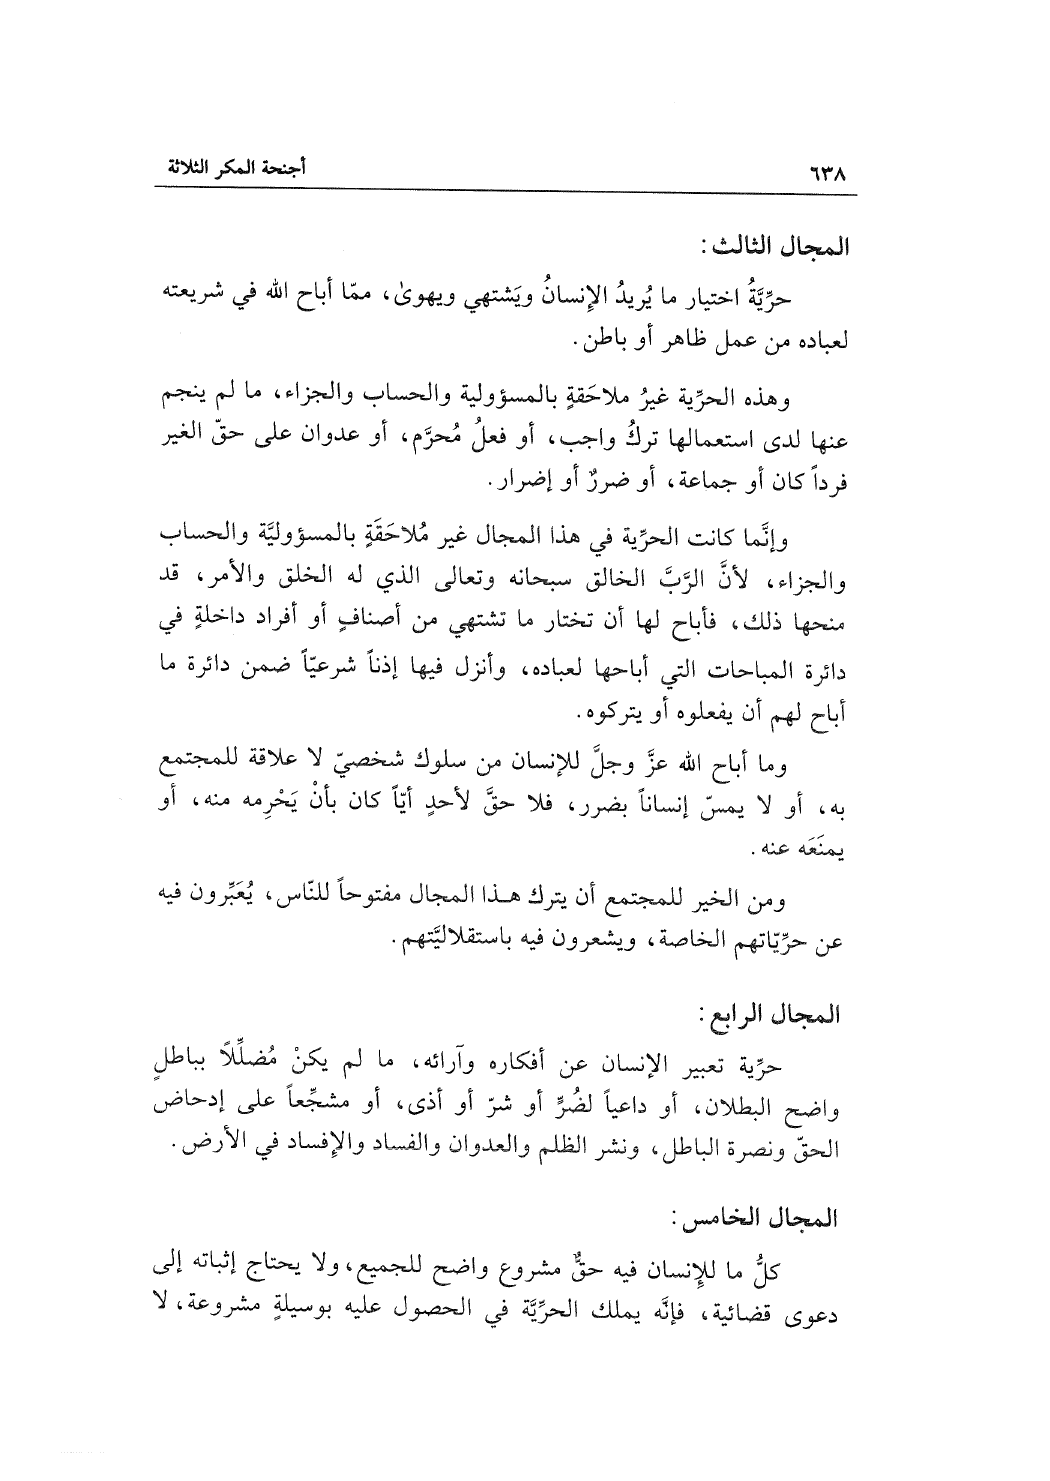 ٦٣٨
أجنحة المكر الثلاثة
المجال الثالث:
حرِّيَّةُ اختيار ما يُريدُ الإِنسانُ ويَشتهي ويهوىٰ، ممّا أباح الله في شريعته
لعباده من عمل ظاهر أو باطن.
وهذه الحرِّية غيرُ ملاحَقةٍ بالمسؤولية والحساب والجزاء، ما لم ينجم
عنها لدى استعمالها تركُ واجب، أو فعلُ مُحرَّم، أو عدوان على حقّ الغير
فرداً كان أو جماعة، أو ضررٌ أو إضرار.
وإنَّما كانت الحرِّية في هذا المجال غير مُلاحَقَةٍ بالمسؤوليَّة والحساب
والجزاء، لأنَّ الرَّبَّ الخالق سبحانه وتعالى الذي له الخلق والأمر، قد
منحها ذلك، فأباح لها أن تختار ما تشتهي من أصنافٍ أو أفراد داخلةٍ في
دائرة المباحات التي أباحها لعباده، وأنزل فيها إذناً شرعيّاً ضمن دائرة ما
أباح لهم أن يفعلوه أو يتركوه.
وما أباح الله عزَّ وجلَّ للإنسان من سلوك شخصيّ لا علاقة للمجتمع
به، أو لا يمسّ إنساناً بضرر، فلا حقَّ لأحدٍ أيّاً كان بأنْ يَحْرِمه منه، أو
يمنَعَه عنه.
ومن الخير للمجتمع أن يترك هـذا المجال مفتوحاً للنّاس، يُعَبِّرون فيه
عن حرِّيّاتهم الخاصة، ويشعرون فيه باستقلاليَّتهم.
المجال الرابع:
حرِّية تعبير الإنسان عن أفكاره وآرائه، ما لم يكنْ مُضلِّلاً بباطلٍ
واضح البطلان، أو داعياً لضُرٍّ أو شرّ أو أذى، أو مشجِّعاً على إدحاض
الحقّ ونصرة الباطل، ونشر الظلم والعدوان والفساد والإفساد في الأرض.
المجال الخامس:
كلُّ ما للإِنسان فيه حقٌّ مشروع واضح للجميع، ولا يحتاج إثباته إلى
دعوى قضائية، فإنَّه يملك الحرِّيَّة في الحصول عليه بوسيلةٍ مشروعة، لا